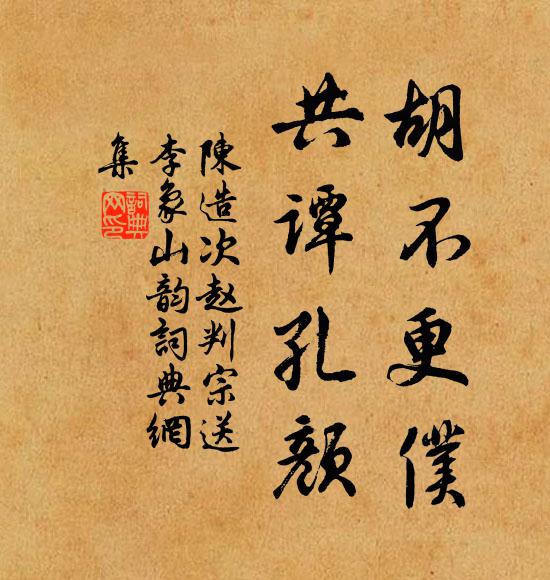 胡不更僕
共譚孔顏
陳造次赵判宗送
李象山韵詞典網
集
詞典網印